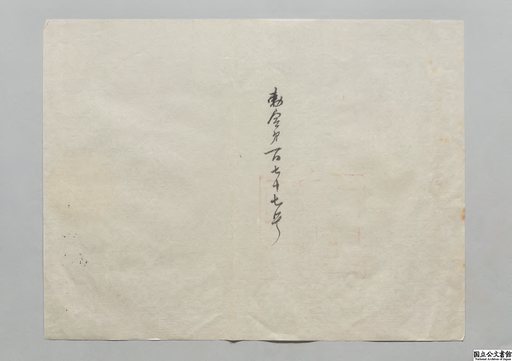 勅令第百七十七号
国立公文書館
National Archives of Japan